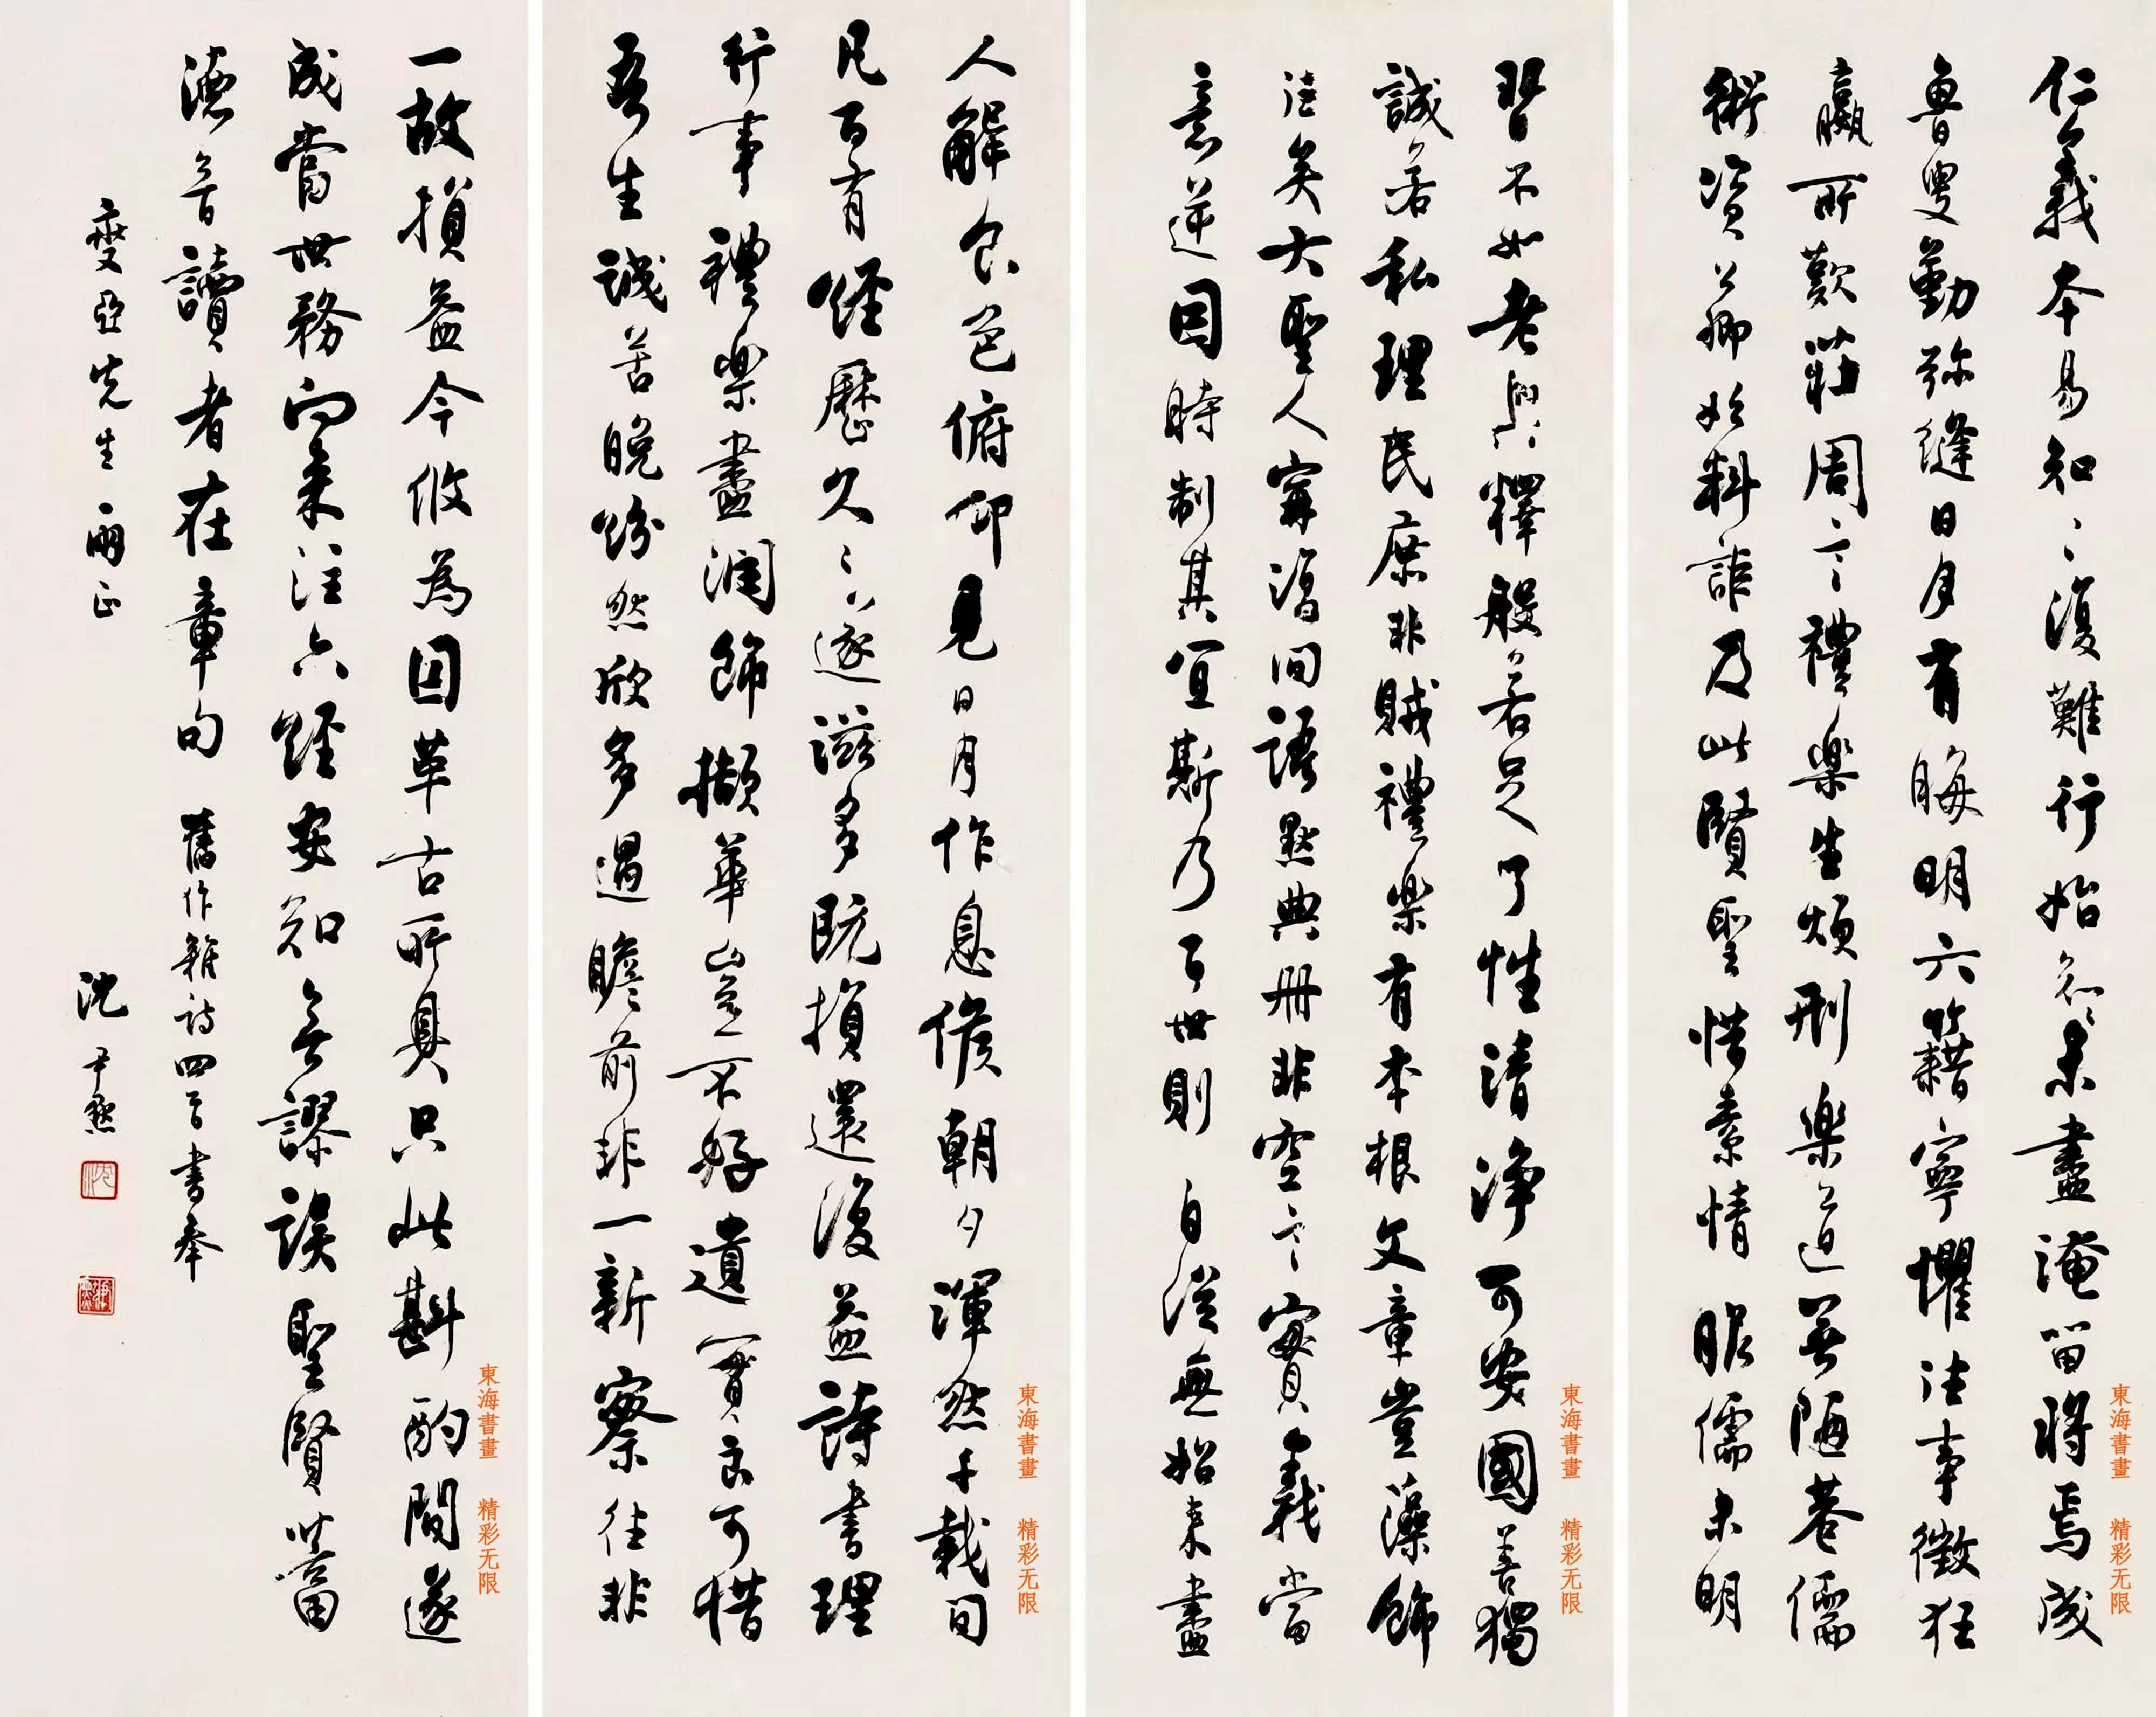 仁義本易知〻復難行始未盡淹留將焉成
魯叟勤弥縫日月有晦明六籍寧懼往事徵狂
嬴所歎莊周言禮樂生煩刑樂道陋巷儒
術資公卿始料詎及此賢聖惜素情服儒未明
習不如老與釋般若足了性清净可安國善獨
誠若私理民庶非賊禮樂有本根文章豈藻飾
往矣大聖人寧間語默典冊非空言實義當
意逆因時制其宜斯乃百世則 自從無始來盡
人解食色俯仰見日月作息候朝夕渾然千載间
凡百有經歷久之遂滋多既損還復益詩書理
行事禮樂盡潤飾擷華豈不好遺實良可惜
吾生誠苦晚紛然欣多遇瞻前非一新察往非
一故損益今攸為因革古所具只此斟酌間遂
成當世務向來注六經安知無謬誤聖賢蓄
德音讀者在章句 舊作雜詩四首書奉
燮亞先生雨正
沈尹默
東海書畫 精彩无限
東海書畫 精彩无限
東海書畫 精彩无限
東海書畫 精彩无限